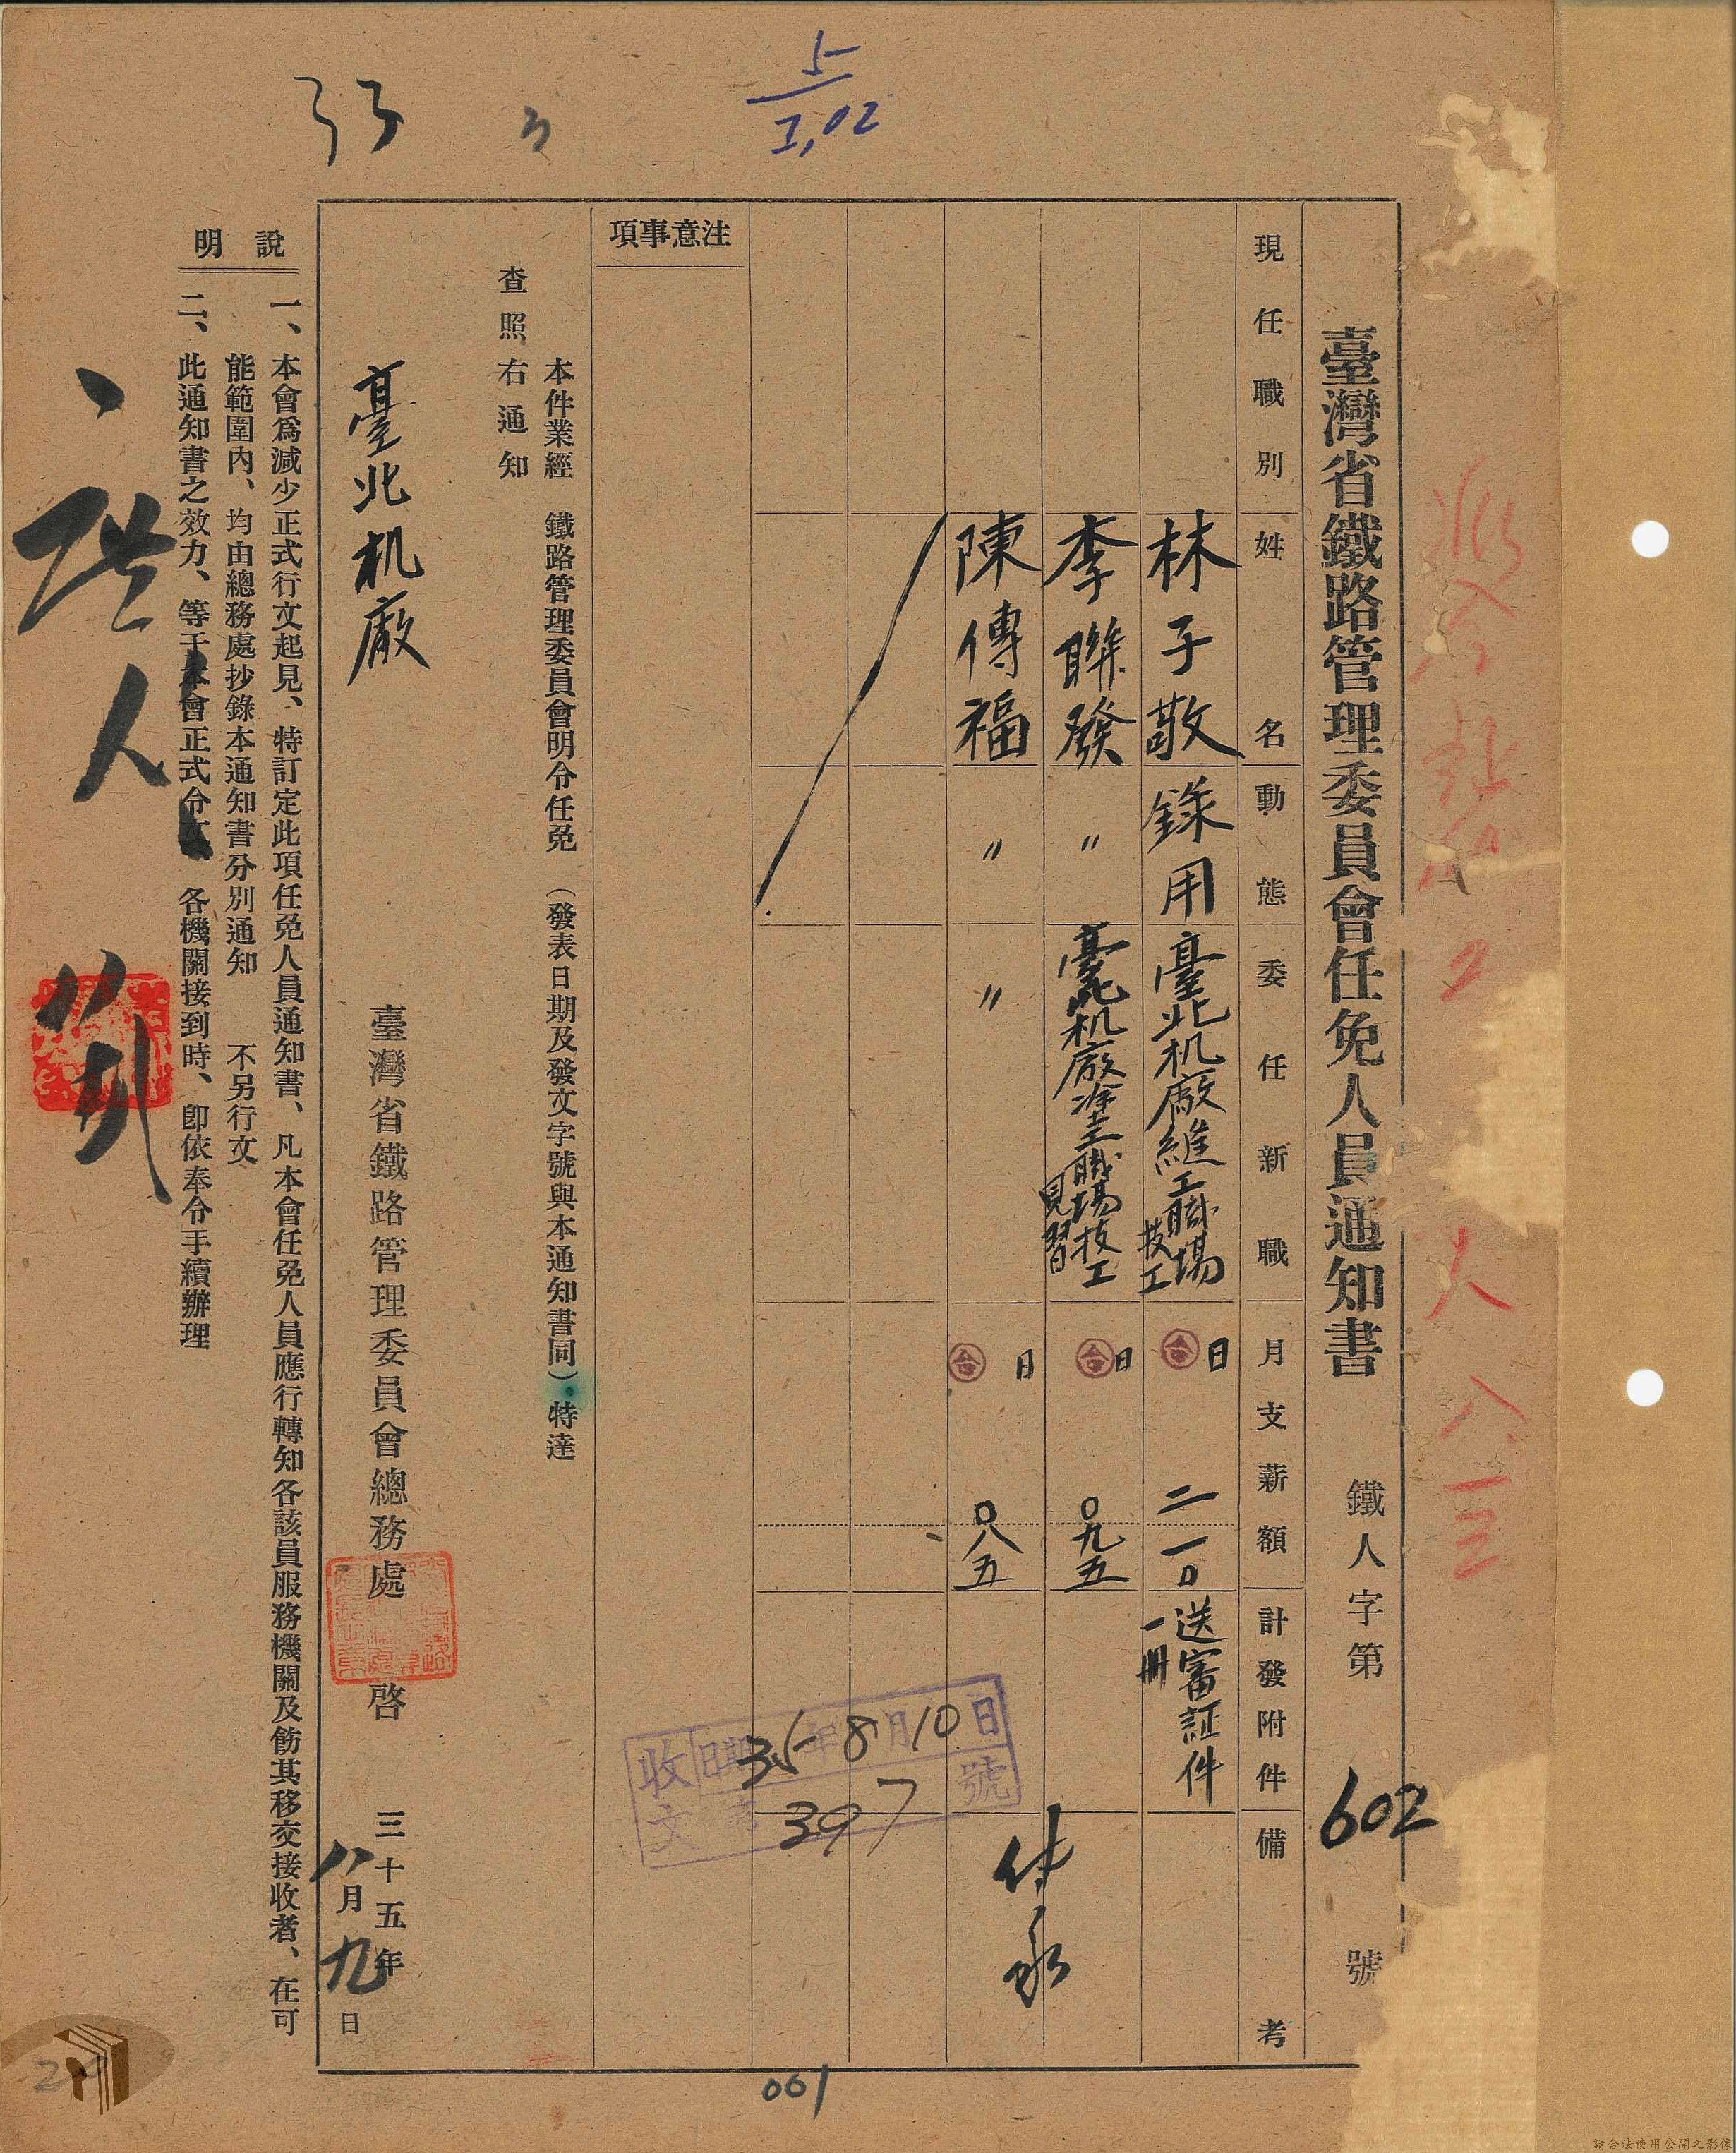 臺灣省鐵路管理委員會任免人員通知書 鐵人字第602號
現任職別 姓名 動態 委任新職 月支薪額 計發附件 備考
林子敬 錄用 臺北机廠維工職場技工 日 二一〇 送審証件一冊
李聯發 〃 臺北机廠塗工職場技工見習 日 〇九五
陳傳福 〃 〃 日 〇八五
注意事項
本件業經 鐵路管理委員會明令任免（發表日期及發文字號與本通知書同）特達
查照右通知
臺北机廠
臺灣省鐵路管理委員會總務處 啓 三十五年
八月九日
說明
一、本會爲減少正式行文起見、特訂定此項任免人員通知書、凡本會任免人員應行轉知各該員服務機關及飭其移交接收者、在可
能範圍內、均由總務處抄錄本通知書分別通知 不另行文
二、此通知書之效力、等于本會正式令文 各機關接到時、卽依奉令手續辦理
收文 日期 35年8月10日
397號
001
請合法使用公開之影像